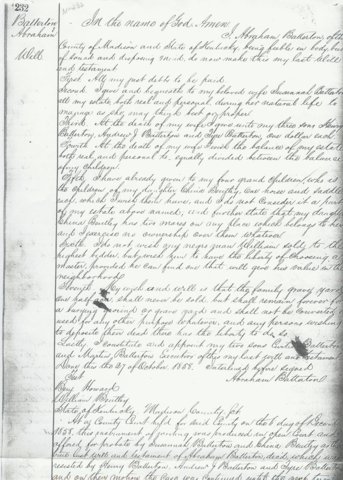 232
Batterton
Abraham
Will
In the name of God Amen
I, Abraham Batterton of the
County of Madison and State of Kentucky, being feeble in body, but
of sound and disposing mind, do now make this my last Will
and testament
First. All my just debts to be paid.
Second. I give and bequeath to my beloved wife Susannah Batterton
all my estate both real and personal, during her natural life to
manage as she may think best or proper
Third. At the death of my wife I give unto my three sons Henry
Batterton, Andrew J Batterton and Tyre Batterton, one dollar each.
Fourth. At the death of my wife I wish the balance of my estate
both real and personal to, equally divided between the balance
of my children.
Fifth. I have already given to my four grand children, who is
the children of my daughter China Bently, one horse and saddle
each, which I wish them have, and I do not consider it a part
of my estate above named, and further state that my daughter
China Bently has two mares on my place which belongs to her
and I exercise no ownership over them whatever
Sixth. I do not wish my negro man William sold to the
highest bidder, but wish him to have the liberty of choosing a
master, provided he can find one that will give his value in the
neighborhood.
Seventh. My wish and will is that the family grave yard
one half acre shall never be sold, but shall remain forever for
a burying ground or grave yard and shall not be converted
used for any other purpose whatever, and any persons wishing
to deposit their dead there has the liberty to do so.
Lastly. I constitute and appoint my two sons Batterton
and Martin Batterton Executors of this my last will and testament
Done this the 27 of October 1858. Interlined before signed
Test
Abraham Batterton
Howard
William Bently
State of Kentucky Madison County Sct
At a County Court held for said County on the 6 day of December
1858, this instrument of writing was produced in open Court and
offered for probate by Susannah Batterton and China Bently as the
true last will and testament of Abraham Batterton dead, which was
resisted by Henry Batterton, Andrew J Batterton and Tyre Batterton
and on their motion the case was continued until the